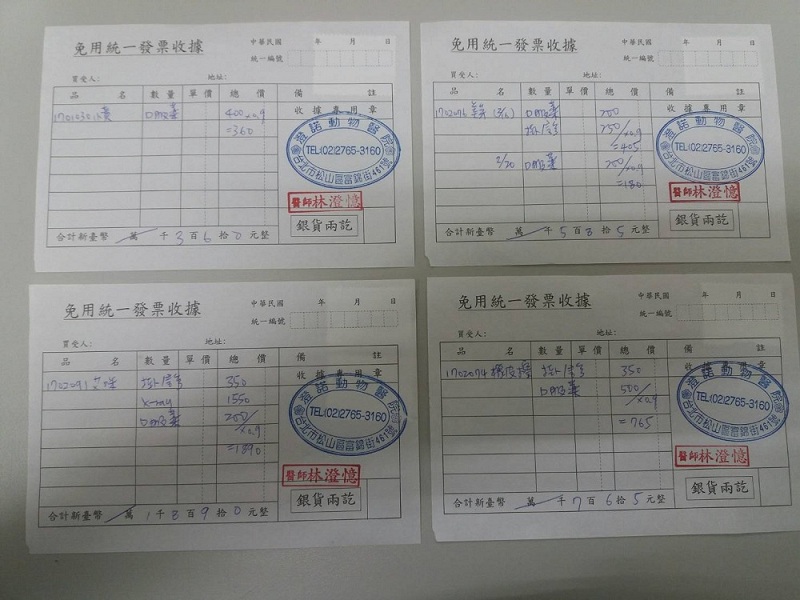 免用統一發票收據
中華民國 年 月 日
統一編號
買受人: 地址:
品 名 數量 單價 總價 備 註
收據專用章
1701030 小黃 口服藥 400 x0.9
=360
澄諾動物醫院
TEL:(02)2765-3160
台北市松山區富錦街461號
醫師 林澄憶
銀貨兩訖
合計新臺幣 萬 千 3 百 6 拾 0 元整
免用統一發票收據
中華民國 年 月 日
統一編號
買受人: 地址:
品 名 數量 單價 總價 備 註
收據專用章
1702076 (2/6) 口服藥 200
掛號 250/x0.9
=405
2/20 口服藥 200/x0.9
=180
澄諾動物醫院
TEL:(02)2765-3160
台北市松山區富錦街461號
醫師 林澄憶
銀貨兩訖
合計新臺幣 萬 千 5 百 8 拾 5 元整
免用統一發票收據
中華民國 年 月 日
統一編號
買受人: 地址:
品 名 數量 單價 總價 備 註
收據專用章
1702091 掛號 350
X-ray 1550
口服藥 200/x0.9
=1890
澄諾動物醫院
TEL:(02)2765-3160
台北市松山區富錦街461號
醫師 林澄憶
銀貨兩訖
合計新臺幣 萬 1 千 8 百 9 拾 0 元整
免用統一發票收據
中華民國 年 月 日
統一編號
買受人: 地址:
品 名 數量 單價 總價 備 註
收據專用章
1702074 橡皮擦 掛號 350
口服藥 500/x0.9
=765
澄諾動物醫院
TEL:(02)2765-3160
台北市松山區富錦街461號
醫師 林澄憶
銀貨兩訖
合計新臺幣 萬 千 7 百 6 拾 5 元整